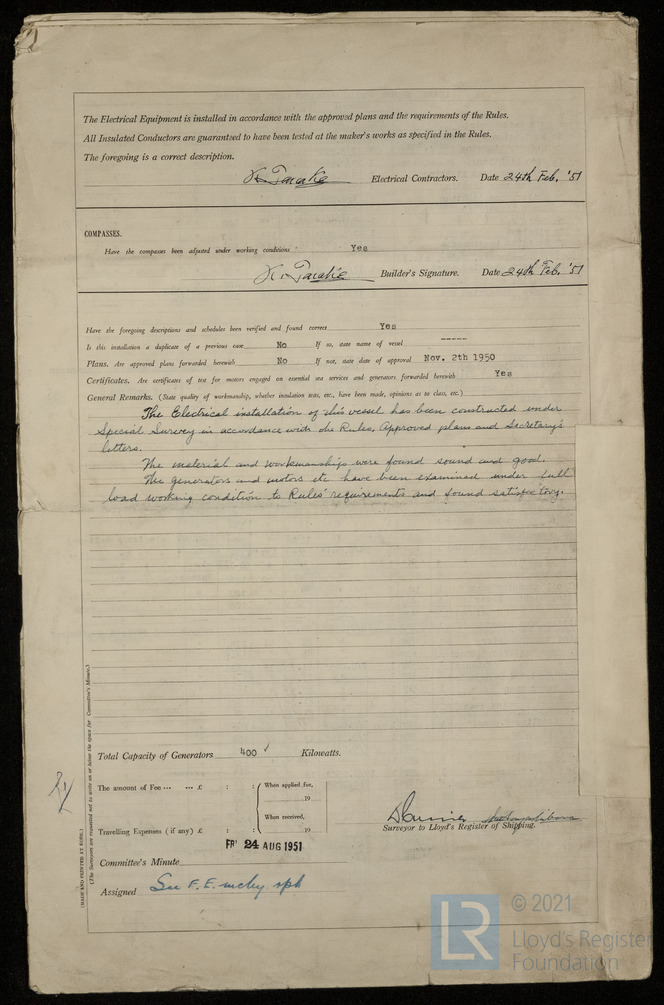 The Electrical Equipment is installed in accordance with the approved plans and the requirements of the Rules.
All Insulated Conductors are guaranteed to have been tested at the maker's works as specified in the Rules.
The foregoing is a correct description.
Electrical Contractors. Date 24th Feb, '51
COMPASSES.
Have the compasses been adjusted under working conditions Yes
Builder's Signature. Date 24th Feb, '51
Have the foregoing descriptions and schedules been verified and found correct Yes
Is this installation a duplicate of a previous case No If so, state name of vessel -----
Plans. Are approved plans forwarded herewith No If not, state date of approval Nov. 2th 1950
Certificates. Are certificates of test for motors engaged on essential sea services and generators forwarded herewith Yes
General Remarks. (State quality of workmanship, whether insulation tests, etc., have been made, opinions as to class, etc.)
The Electrical installation of this vessel has been constructed under
Special Survey in accordance with the Rules, Approved plans and Secretary's
letters.
The material and workmanships were found sound and good.
The generators and motors etc have been examined under full
load working condition to Rules' requirements and found satisfactory.
Total Capacity of Generators 400 ✓ Kilowatts.
The amount of Fee ... ... £ : : When applied for,
19
When received,
Travelling Expenses (if any) £ : : 19
Surveyor to Lloyd's Register of Shipping.
FRI 24 AUG 1951
Committee's Minute
Assigned See F.E. mchy rpt
(MADE AND PRINTED AT KOBE.)
(The Surveyors are requested not to write on or below the space for Committee's Minute.)
LR
© 2021
Lloyd's Register
Foundation